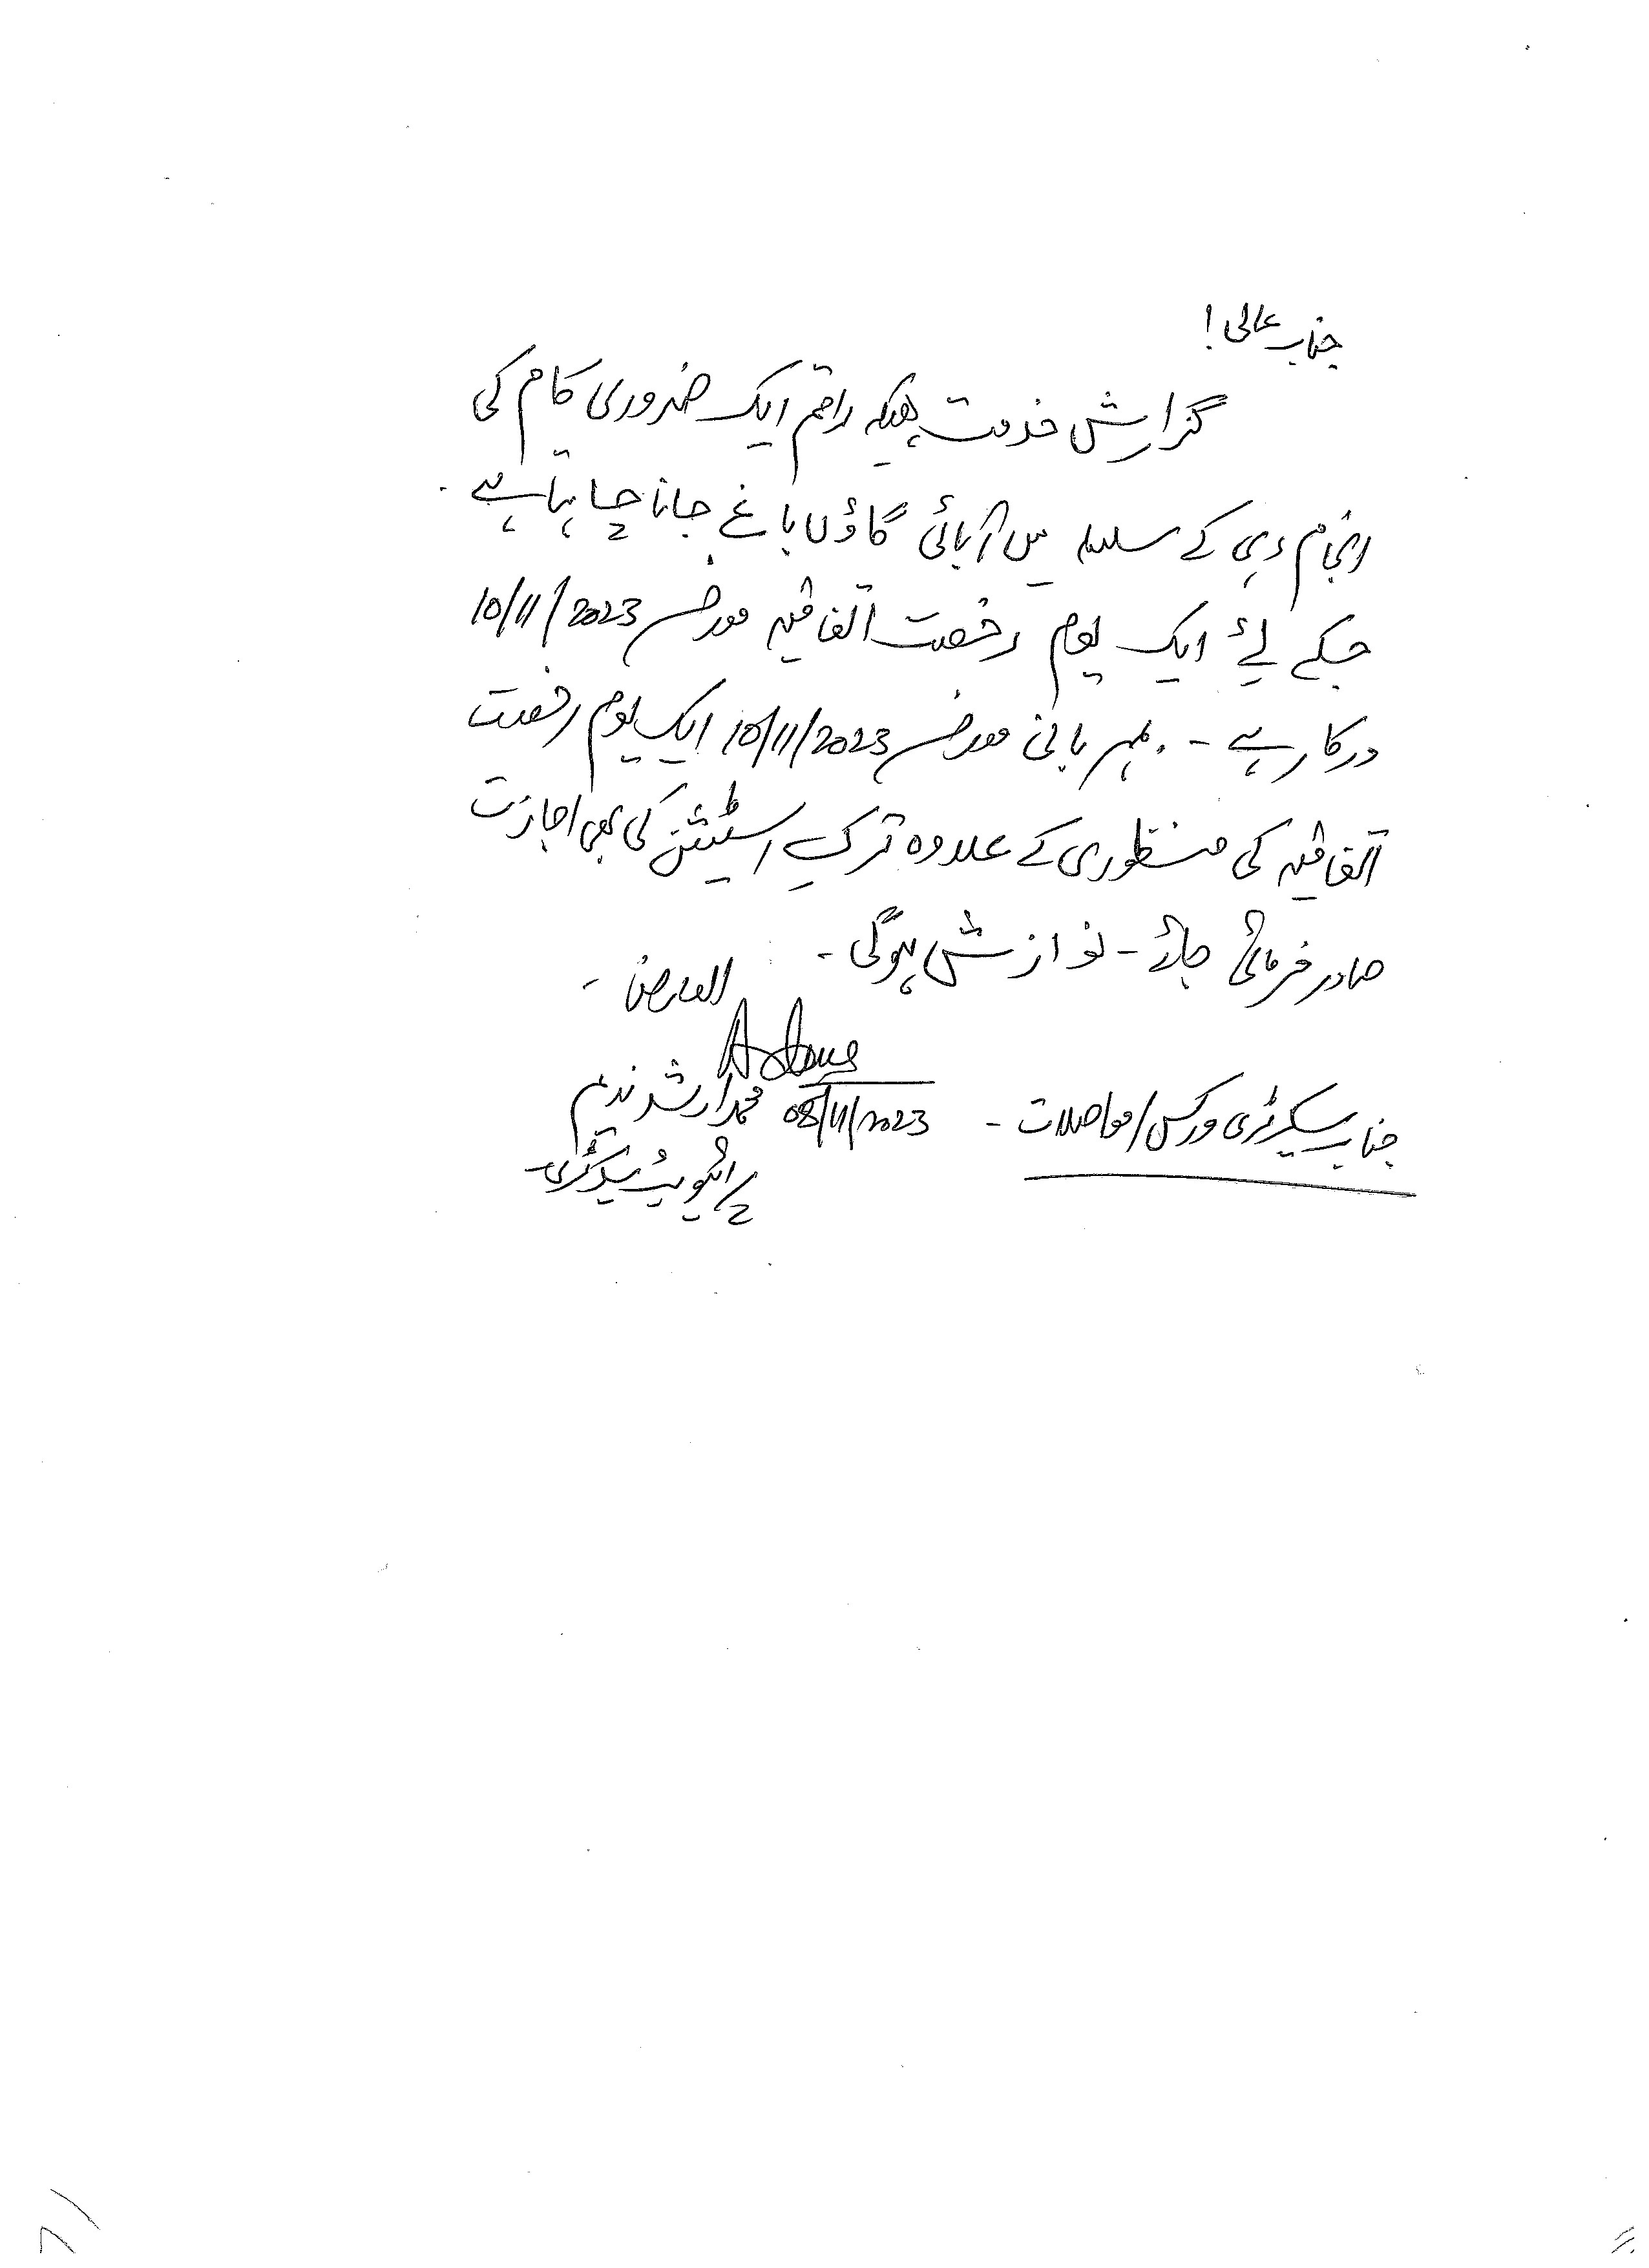 جناب عالی!
گزارش خدمت ہیکہ راقم ایک ضروری کام کی
انجام دہی کے سلسلہ میں آبائی گاؤں باغ جانا چاہتا ہے۔
جسکے لئے ایک یوم رخصت اتفاقیہ مورخہ 10/11/2023
درکار ہے۔ مہربانی مورخہ 10/11/2023 ایک یوم رخصت
اتفاقیہ کی منظوری کے علاوہ ترکِ اسٹیشن کی بھی اجازت
صادر فرمائی جائے۔ نوازش ہوگی۔
العارض۔
08/11/2023
محمد ارشد ندیم
پرائیویٹ سیکرٹری۔
جناب سیکرٹری ورکس/مواصلات۔